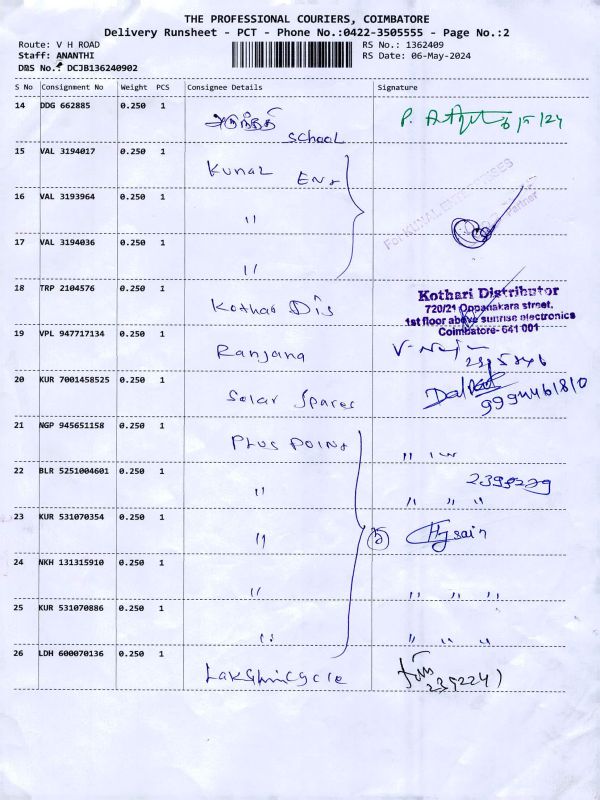 THE PROFESSIONAL COURIERS, COIMBATORE
Delivery Runsheet - PCT - Phone No.:0422-3505555 - Page No.:2
Route: V H ROAD RS No.: 1362409
Staff: ANANTHI RS Date: 06-May-2024
D&S No.: DCJB136240902
S No Consignment No Weight PCS Consignee Details Signature
14 DDG 662885 0.250 1
School
15 VAL 3194017 0.250 1 Kunal Ent
16 VAL 3193964 0.250 1 "
For KUNAL ENTERPRISES
Partner
17 VAL 3194036 0.250 1 "
18 TRP 2104576 0.250 1 Kothari Dis
Kothari Distributor
720/21 Oppanakara street,
1st floor above sunrise electronics
Coimbatore- 641 001
19 VPL 947717134 0.250 1 Ranjana
20 KUR 7001458525 0.250 1 Solar Spares
21 NGP 945651158 0.250 1 Plus Point
22 BLR 5251004601 0.250 1 " " " "
23 KUR 531070354 0.250 1 " 5
24 NKH 131315910 0.250 1 " " " "
25 KUR 531070886 0.250 1 " " " "
26 LDH 600070136 0.250 1 Lakshmi cycle